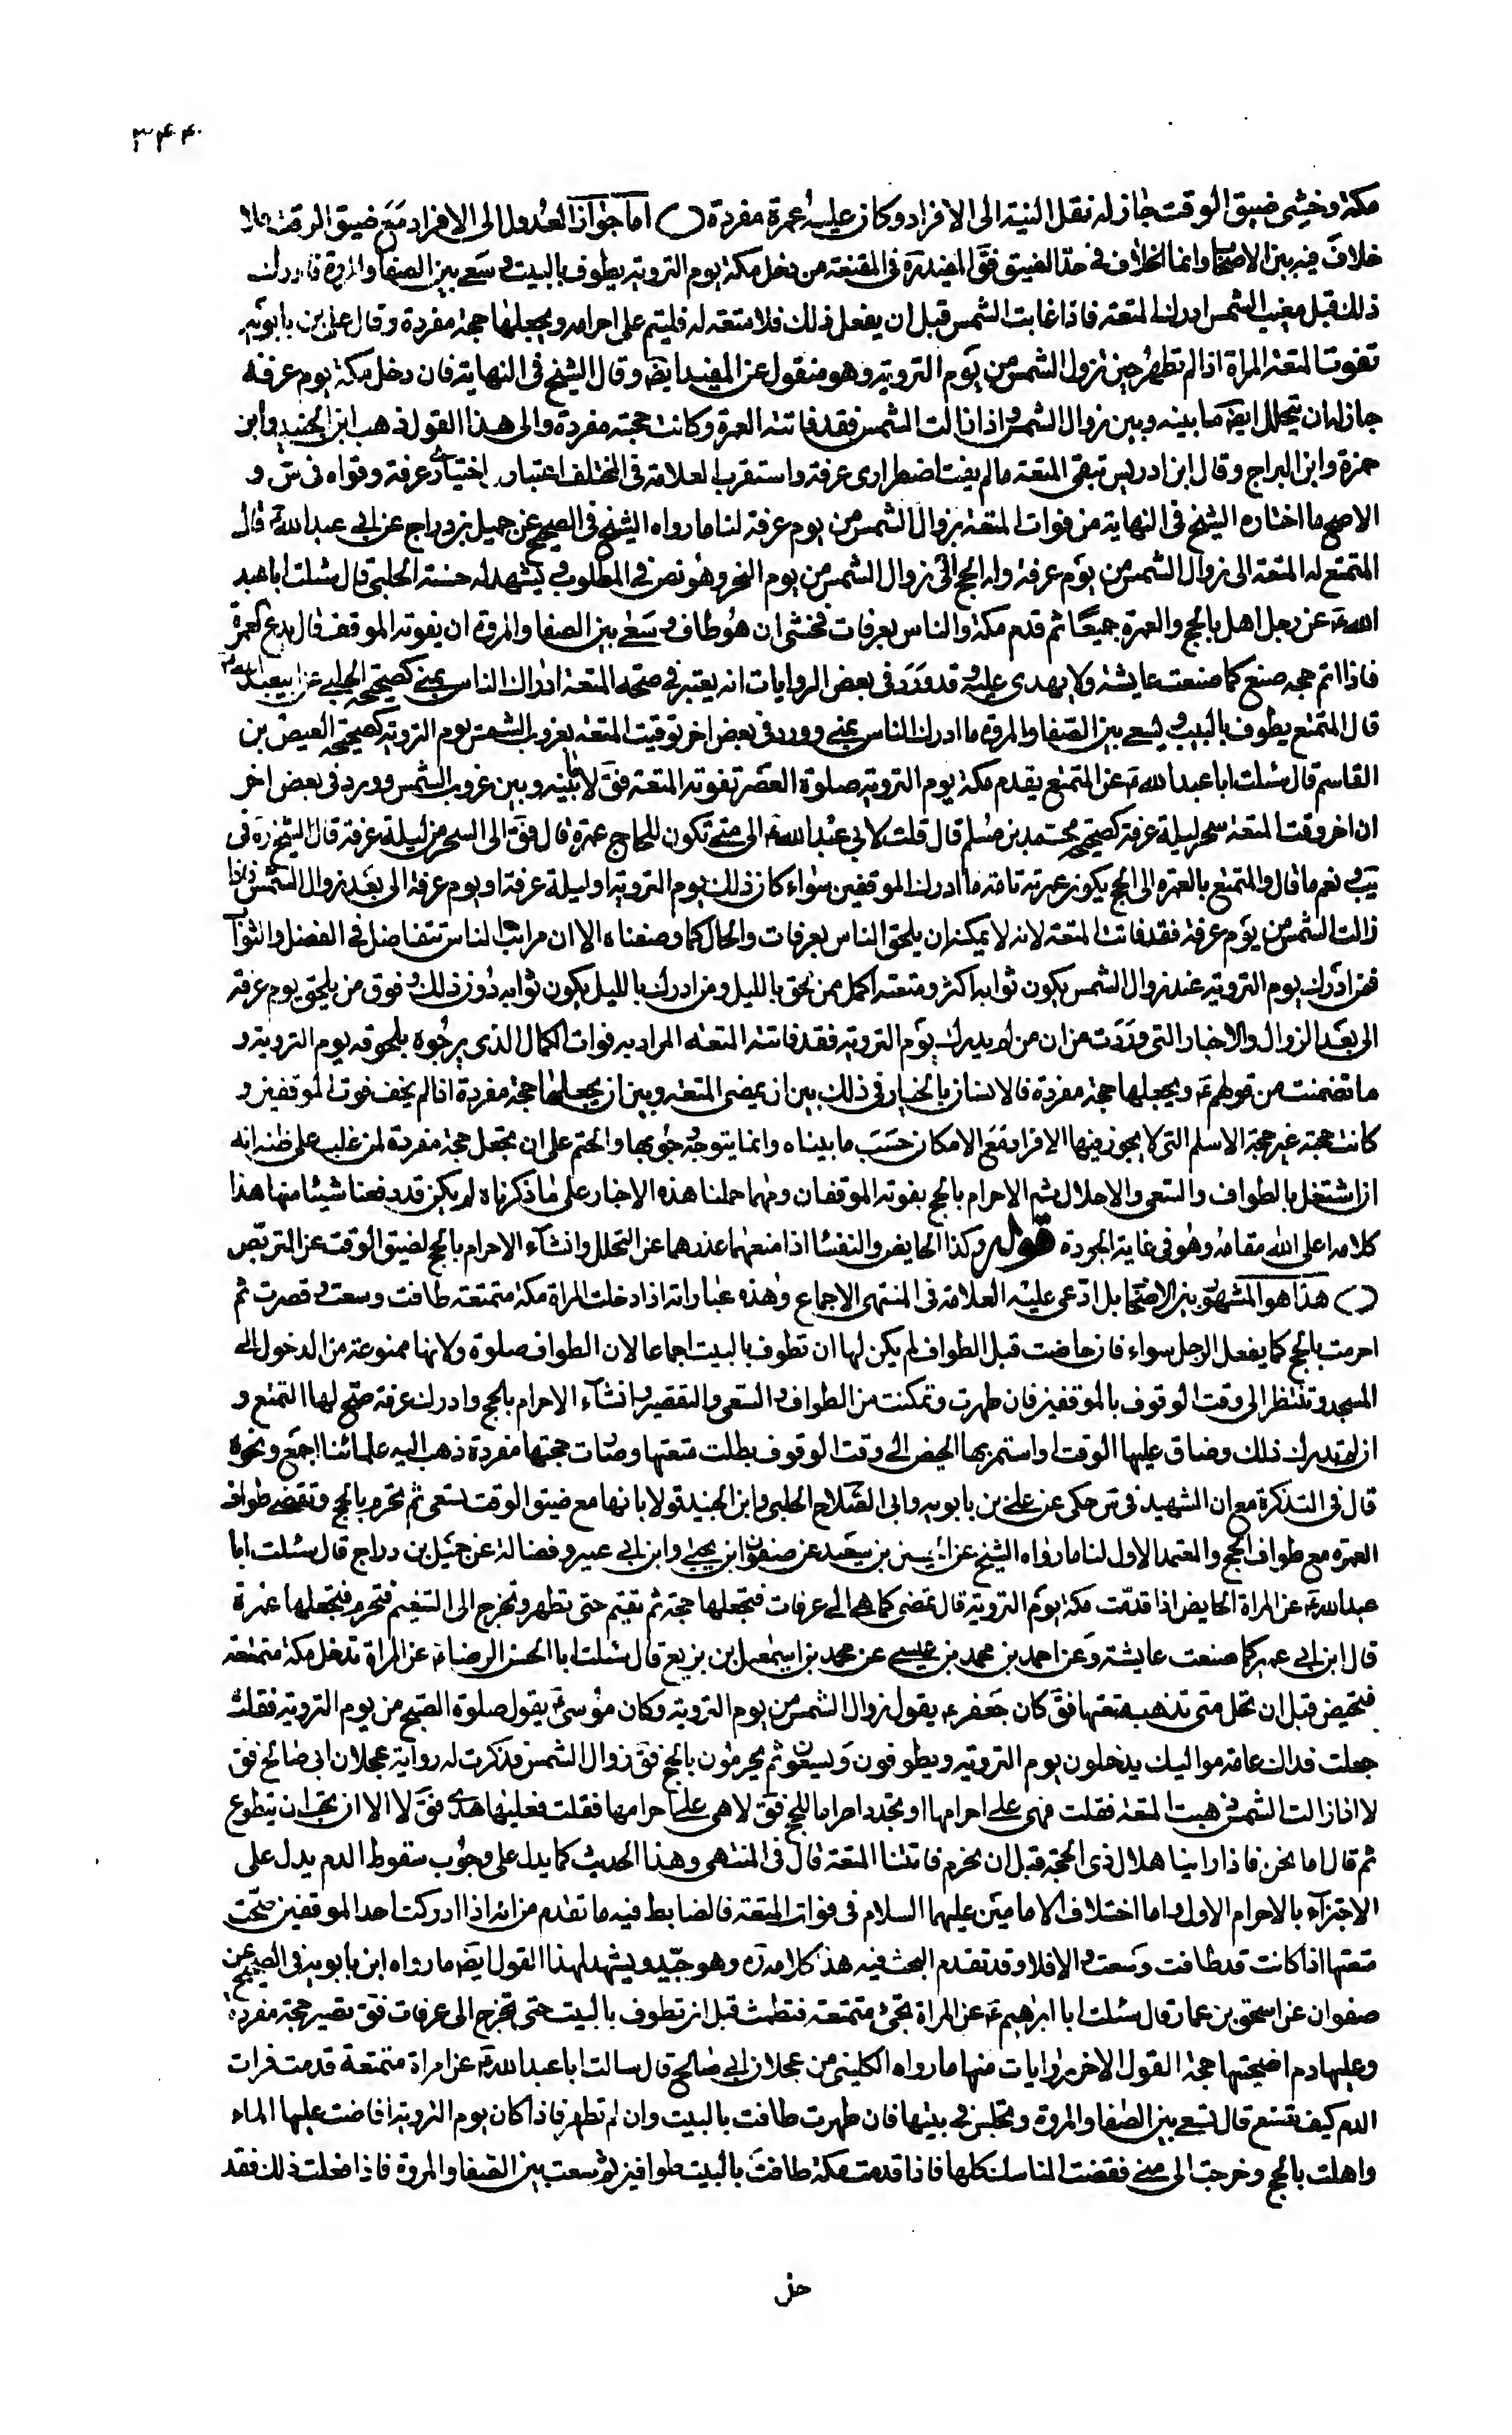 ٣٤٤
مكة وخشى ضيق الوقت جاز له نقل النية الى الافراد وكان عليه عمرة مفردة اما جواز العدول الى الافراد مع ضيق الوقت فلا
خلاف فيه بين الاصحاب وانما الخلاف فى حدّ الضيق فقَ المفيد ره فى المقنعة من دخل مكة يوم التروية يطوف بالبيت وسعى بين الصفا والمروة فادرك
ذلك قبل مغيب الشمس ادرك المتعة فاذا غابت الشمس قبل ان يفعل ذلك فلا متعة له فليتم على احرامه ويجعلها حجة مفردة وقال على بن بابويه
تفوت المتعة المراة اذا لم تطهر حين تزول الشمس من يوم التروية وهو منقول عن المفيد ايضا وقال الشيخ فى النهاية فان دخل مكة يوم عرفة
جاز له ان يتحلل ايضَ ما بينه وبين زوال الشمس واذا زالت الشمس فقد فاتته العمرة وكانت حجته مفردة والى هذا القول ذهب ابن الجنيد وابن
حمزة وابن البراج وقال ابن ادريس تبقى المتعة ما لم يفت اضطرارى عرفة واستقرب العلامة فى المختلف اعتبار اختيارى عرفة وقواه فى س و
الاصح ما اختاره الشيخ فى النهاية من فوات المتعة بزوال الشمس من يوم عرفة لنا ما رواه الشيخ فى الصحيح عن جميل بن دراج عن ابى عبد الله ع قال
المتمتع له المتعة الى زوال الشمس من يوم عرفة وله الحج الى زوال الشمس من يوم النحر وهو نص فى المطلوب ويشهد له حسنة الحلبى قال سئلت ابا عبد
الله ع عن رجل اهل بالحج والعمرة جميعًا ثم قدم مكة والناس بعرفات فخشى ان هو طاف وسعى بين الصفا والمروة ان يفوته الموقف قال يدع العمرة
فاذا اتم حجه صنع كما صنعت عايشة ولا هدى عليه وقد ورد فى بعض الروايات انه يعتبر فى صحة المتعة ادراك الناس بمنى كصحيحة الحلبى عن ابيعبد الله ع
قال المتمتع يطوف بالبيت ويسعى بين الصفا والمروة ما ادرك الناس بمنى وورد فى بعض اخر توقيت المتعة بغروب الشمس يوم التروية كصحيحة العيص بن
القاسم قال سئلت ابا عبد الله ع عن المتمتع يقدم مكة يوم التروية صلوة العصر تفوته المتعة فقَ لا ما بينه وبين غروب الشمس وورد فى بعض اخر
ان اخر وقت المتعة سحر ليلة عرفة كصحيحة محمد بن مسلم قال قلت لابى عبد الله ع الى متى تكون للحاج عمرة قال فقَ الى السحر من ليلة عرفة قال الشيخ ره فى
يب ونعم ما قال والمتمتع بالعمرة الى الحج يكون عمرته تامة ما ادرك الموقفين سواء كان ذلك يوم التروية او ليلة عرفة او يوم عرفة الى بعد زوال الشمس فاذا
زالت الشمس من يوم عرفة فقد فاتت المتعة لانه لا يمكنه ان يلحق الناس بعرفات والحال كما وصفناه الا ان مراتب الناس تتفاضل فى الفضل والثواب
فمن ادرك يوم التروية عند زوال الشمس يكون ثوابه اكثر ومتعته اكمل ممن لحق بالليل ومن ادرك بالليل يكون ثوابه دون ذلك وفوق من يلحق يوم عرفة
الى بعد الزوال والاخبار التى وردت من ان من لم يدرك يوم التروية فقد فاتته المتعة المراد به فوات الكمال الذى يرجوه بلحوقه يوم التروية و
ما تضمنت من قولهم ع ويجعلها حجة مفردة فالانسان بالخيار فى ذلك بين ان يمضى المتعة وبين ان يجعلها حجة مفردة اذا لم يخف فوت الموقفين و
كانت حجته غير حجة الاسلم التى لا يجوز فيها الافراد مع الامكان حسب ما بيناه وانما يتوجه وجوبها والحتم على ان يجعل حجة مفردة لمن غلب على ظنه انه
ان اشتغل بالطواف والسعى والاحلال ثم الاحرام بالحج يفوته الموقفان ومهما حملنا هذه الاخبار على ما ذكرناه لم يكن قد دفعنا شيئا منها هذا
كلامه اعلى الله مقامه وهو فى غاية الجودة قوله وكذا الحايض والنفساء اذا منعهما عذرهما عن التحلل وانشاء الاحرام بالحج لضيق الوقت عن التربص
هذا هو المشهور بين الاصحاب بل ادعى عليه العلامة فى المنتهى الاجماع وهذه عباراته اذا دخلت المراة مكة متمتعة طافت وسعت وقصرت ثم
احرمت بالحج كما يفعل الرجل سواء فان حاضت قبل الطواف لم يكن لها ان تطوف بالبيت اجماعا لان الطواف صلوة ولانها ممنوعة من الدخول الى
المسجد وتنتظر الى وقت الوقوف بالموقفين فان طهرت وتمكنت من الطواف والسعى والتقصير وانشاء الاحرام بالحج وادراك عرفة صح لها التمتع و
ان لم تدرك ذلك وضاق عليها الوقت او استمر بها الحيض الى وقت الوقوف بطلت متعتها وصارت حجتها مفردة ذهب اليه علمائنا اجمع ونحوه
قال فى التذكرة مع ان الشهيد فى س حكى عن على بن بابويه وابى الصلاح الحلبى وابن الجنيد قولا بانها مع ضيق الوقت تسعى ثم تحرم بالحج وتقضى طواف
العمرة مع طواف الحج والمعتمد الاول لنا ما رواه الشيخ عن الحسين بن سعيد عن صفوان ابن يحيى وابن ابى عمير وفضالة عن جميل بن دراج قال سئلت ابا
عبد الله ع عن المراة الحايض اذا قدمت مكة يوم التروية قال تمضى كما هى الى عرفات فتجعلها حجة ثم تقيم حتى تطهر وتخرج الى التنعيم فتحرم فتجعلها عمرة
قال ابن ابى عمير كما صنعت عايشة وعن احمد بن محمد بن عيسى عن محمد بن اسمعيل بن بزيع قال سئلت ابا الحسن الرضا ع عن المراة تدخل مكة متمتعة
فتحيض قبل ان تحل متى تذهب متعتها فقَ كان جعفر ع يقول زوال الشمس من يوم التروية وكان موسى ع يقول صلوة الصبح من يوم التروية فقلت
جعلت فداك عامة مواليك يدخلون يوم التروية ويطوفون ويسعون ثم يحرمون بالحج فقَ زوال الشمس فذكرت له رواية عجلان ابى صالح فقَ
لا اذا زالت الشمس ذهبت المتعة فقلت فهى على احرامها او تجدد احرامها للحج فقَ لا هى على احرامها فقلت فعليها هدى فقَ لا الا ان تحب ان تتطوع
ثم قال اما نحن فاذا راينا هلال ذى الحجة قبل ان نحرم فاتتنا المتعة قال فى المنتهى وهذا الحديث كما يدل على وجوب سقوط الدم يدل على
الاجتزاء بالاحرام الاول واما اختلاف الامامين عليهما السلام فى فوات المتعة فالضابط فيه ما تقدم من انه اذا ادركت احد الموقفين صحت
متعتها اذا كانت قد طافت وسعت والا فلا وقد تقدم البحث فيه هذا كلامه ره وهو جيّد ويشهد لهذا القول ايضَ ما رواه ابن بابويه فى الصحيح عن
صفوان عن اسحق بن عمار قال سئلت ابا ابراهيم ع عن المراة تجئ متمتعة فتطمث قبل ان تطوف بالبيت حتى تخرج الى عرفات فقَ تصير حجة مفردة
وعليها دم اضحيتها حجة القول الاخر روايات منها ما رواه الكلينى من عجلان ابى صالح قال سالت ابا عبد الله ع عن امراة متمتعة قدمت فرات
الدم كيف تصنع قال تسعى بين الصفا والمروة وتجلس فى بيتها فان طهرت طافت بالبيت وان لم تطهر فاذا كان يوم التروية افاضت عليها الماء
واهلت بالحج وخرجت الى منى فقضت المناسك كلها فاذا قدمت مكة طافت بالبيت طوافين ثم سعت بين الصفا والمروة فاذا فعلت ذلك فقد
حل